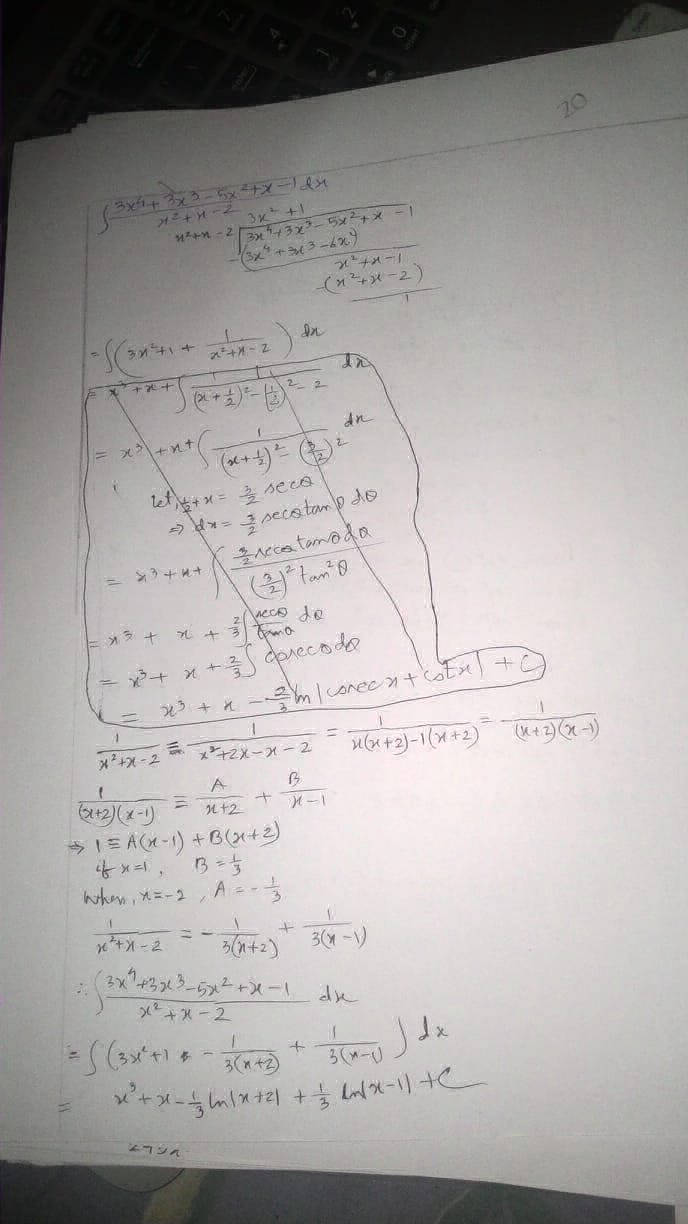 20
∫ (3x⁴ + 3x³ - 5x² + x - 1)/(x² + x - 2) dx
3x² + 1
x² + x - 2 | 3x⁴ + 3x³ - 5x² + x - 1
-(3x⁴ + 3x³ - 6x²)
x² + x - 1
-(x² + x - 2)
1
= ∫(3x² + 1 + 1/(x² + x - 2)) dx
= x³ + x + ∫ 1/((x + 1/2)² - (1/2)² - 2) dx
= x³ + x + ∫ 1/((x + 1/2)² - (3/2)²) dx
Let, 1/2 + x = 3/2 secθ
⇒ dx = 3/2 secθ tanθ dθ
= x³ + x + ∫ (3/2 secθ tanθ dθ)/((3/2)² tan²θ)
= x³ + x + 2/3 ∫ secθ/tanθ dθ
= x³ + x + 2/3 ∫ cosecθ dθ
= x³ + x - 2/3 ln|cosec x + cot x| + C
1/(x² + x - 2) ≡ 1/(x² + 2x - x - 2) = 1/(x(x+2) - 1(x+2)) = 1/((x+2)(x-1))
1/((x+2)(x-1)) ≡ A/(x+2) + B/(x-1)
⇒ 1 ≡ A(x-1) + B(x+2)
if x=1, B = 1/3
when, x=-2, A = -1/3
1/(x² + x - 2) = - 1/(3(x+2)) + 1/(3(x-1))
∴ ∫ (3x⁴ + 3x³ - 5x² + x - 1)/(x² + x - 2) dx
= ∫(3x² + 1 - 1/(3(x+2)) + 1/(3(x-1))) dx
= x³ + x - 1/3 ln|x+2| + 1/3 ln|x-1| + C